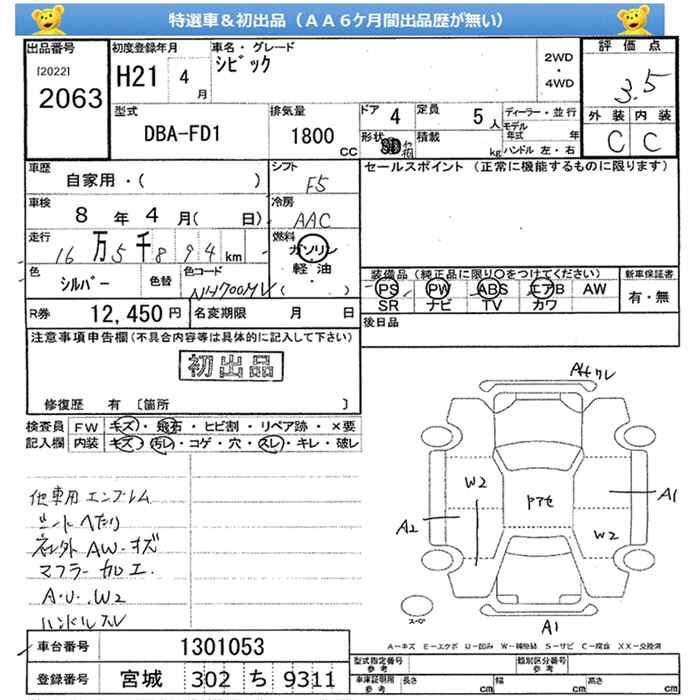 特選車&初出品(AA6ケ月間出品歴が無い)
出品番号
[2022]
2063
初度登録年月
H21 4 月
車名・グレード
シビック
2WD
・
4WD
評価点
3.5
外装 内装
C C
型式
DBA-FD1
排気量
1800 CC
ドア 4
定員 5 人
ディーラー・並行
モデル年式 年
形状
積載 kg
ハンドル 左・右
車歴
自家用・( )
シフト
F5
セールスポイント(正常に機能するものに限ります)
車検
8 年 4 月( 日)
冷房
AAC
走行
16 万 5 千 8 9 4 km
燃料
ガソリン
軽油
( ・ )
色
シルバー
色替
色コード
NH700MV
装備品(純正品に限り○をつけてください)
新車保証書
PS PW ABS エアB AW
有・無
SR ナビ TV カワ
R券 12,450 円
名変期限 月 日
後日品
注意事項申告欄(不具合内容等は具体的に記入して下さい)
初出品
修復歴 有 〔箇所 〕
検査員 FW キズ・飛石・ヒビ割・リペア跡・×要
記入欄 内装 キズ・汚レ・コゲ・穴・スレ・キレ・破レ
他車用エンブレム
シートヘたり
社外AW・キズ
マフラー加工
A・U・W2
ハンドルスレ
W2
A2
A1
W2
A1
スペア
A=キズ E=エクボ U=凹み W=補修跡 S=サビ C=腐食 XX=交換済
車台番号 1301053
登録番号 宮城 302 ち 9311
型式指定番号 参考
類別区分番号 参考
車庫証明用 参考
長さ cm 幅 cm 高さ cm